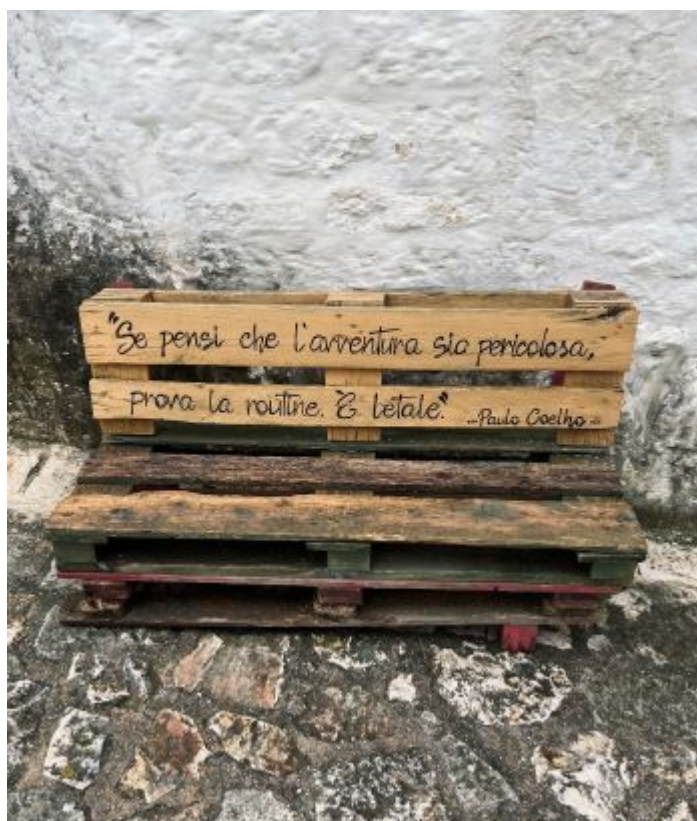 "Se pensi che l'avventura sia pericolosa,
prova la routine. È letale." -Paulo Coelho-